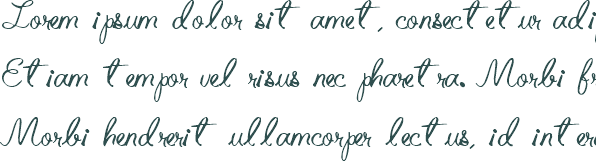 Lorem ipsum dolor sit amet, consectetur adip
Etiam tempor vel risus nec pharetra. Morbi fr
Morbi hendrerit ullamcorper lectus, id inter